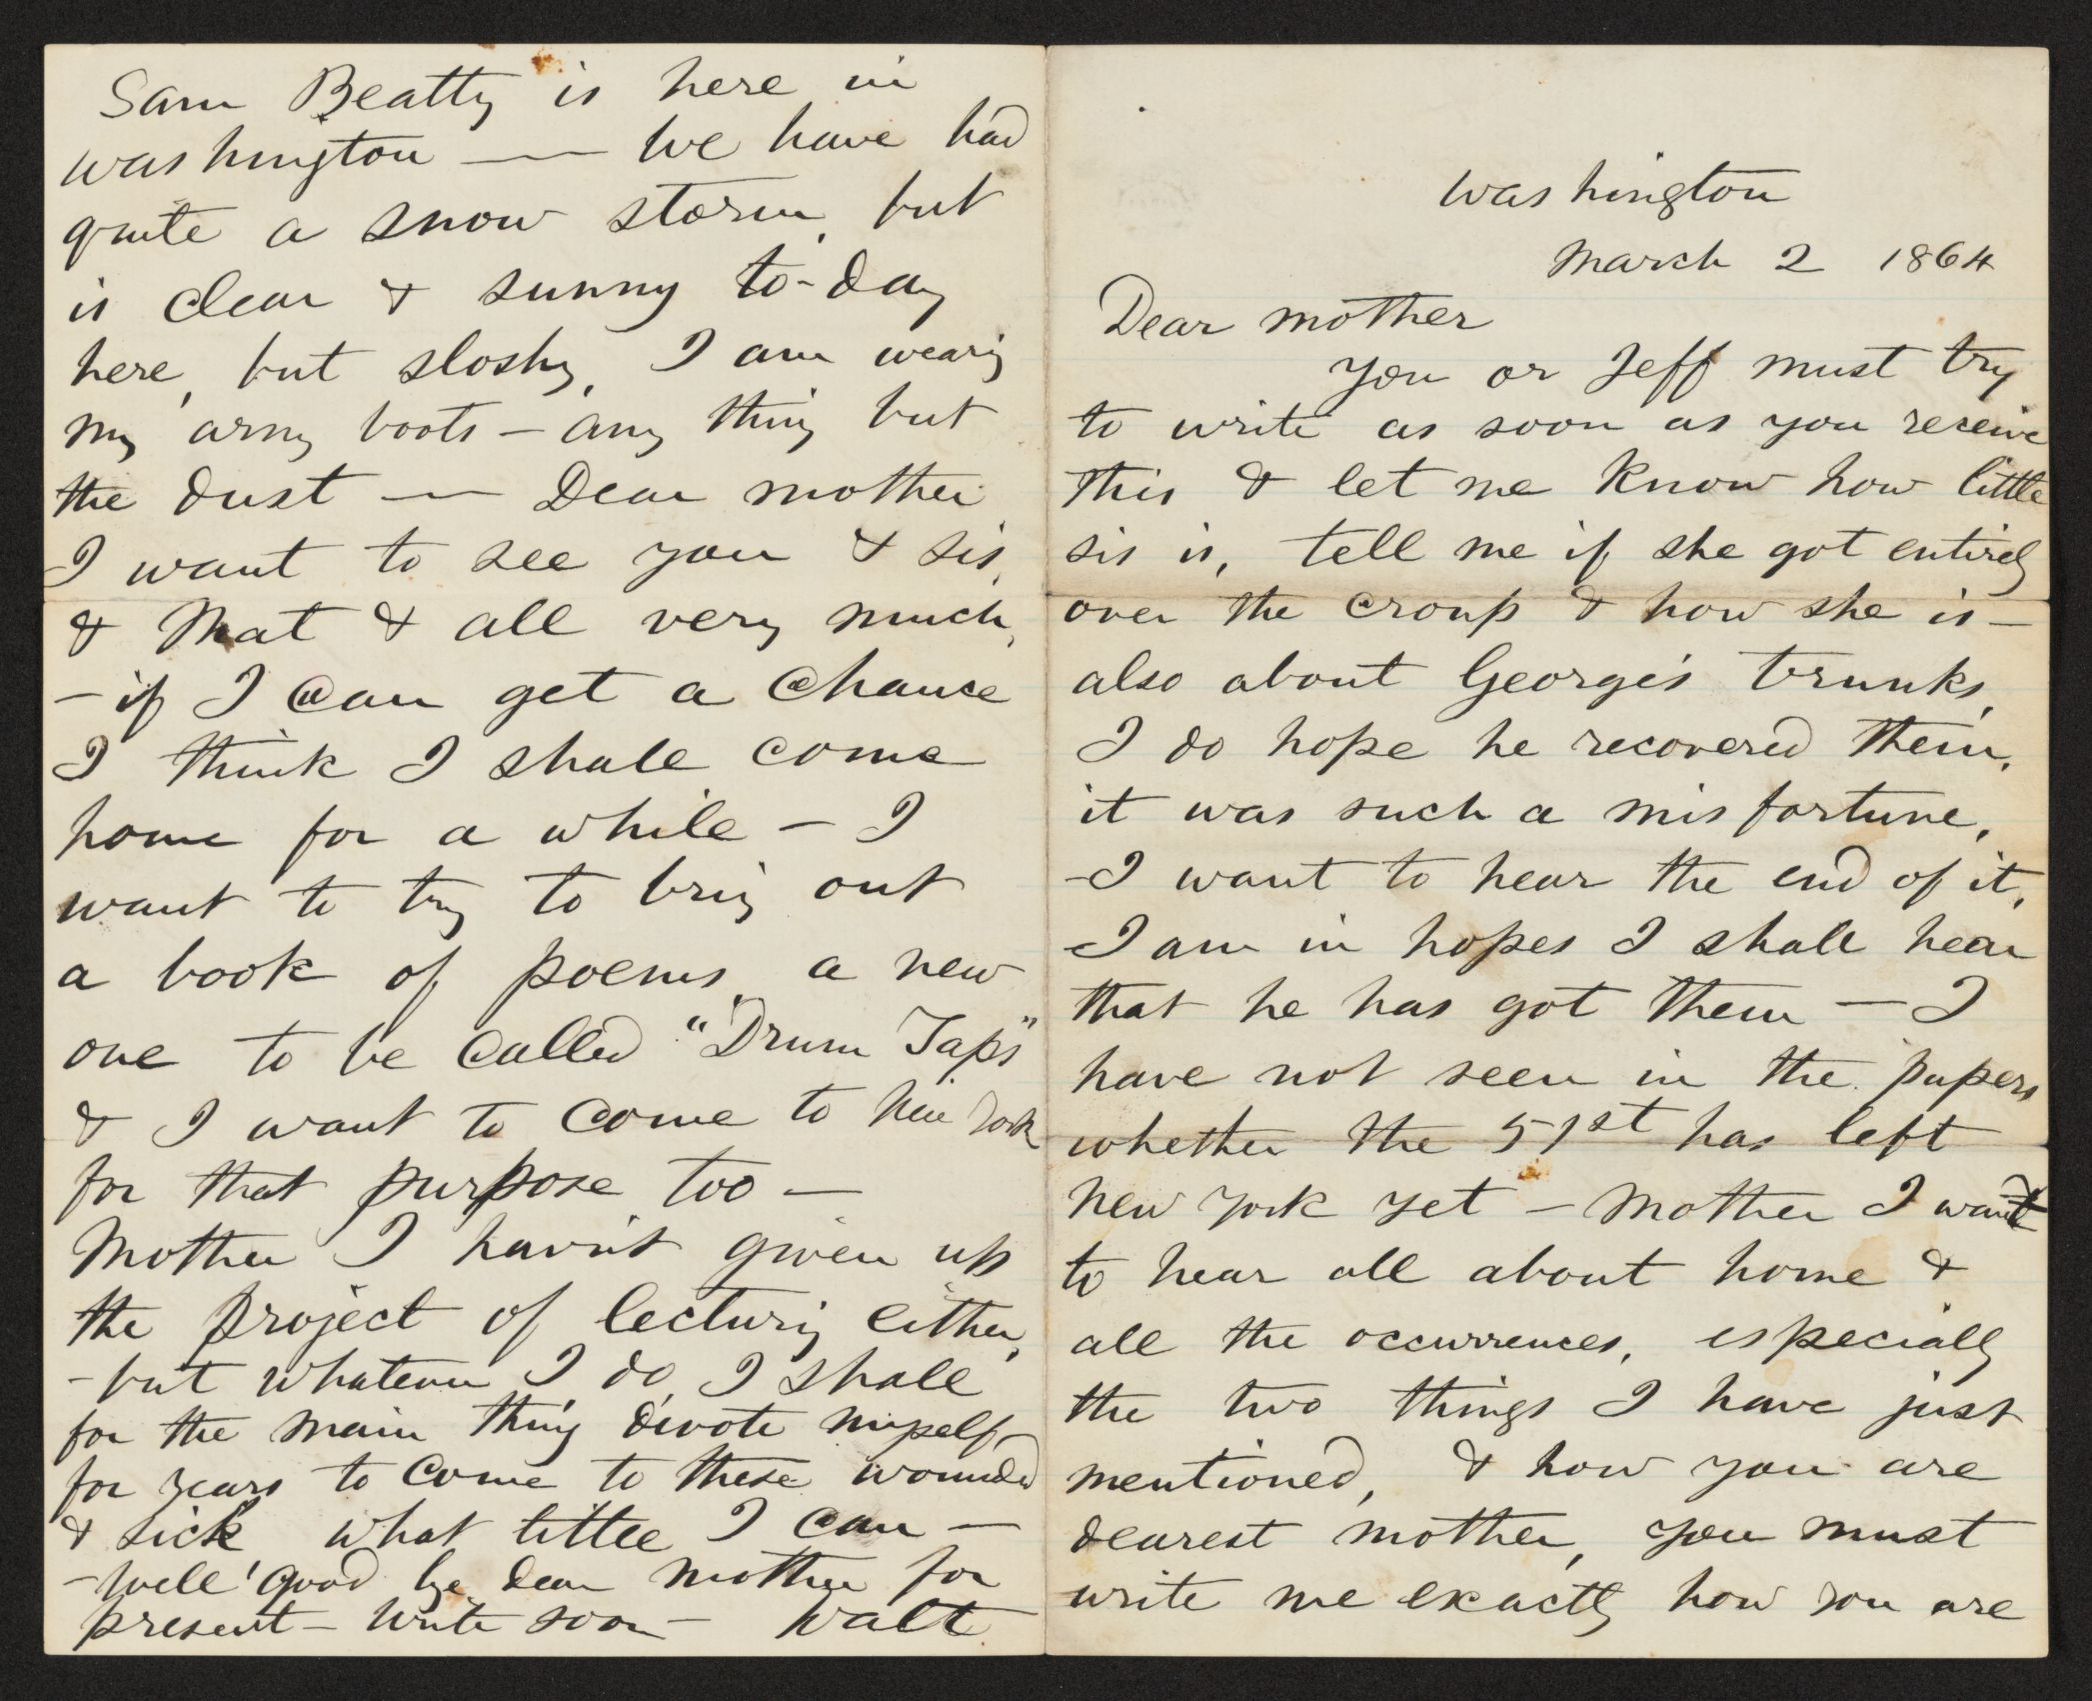 Washington
March 2 1864
Dear mother
you or Jeff must try
to write as soon as you receive
this & let me know how little
sis is, tell me if she got entirely
over the croup & how she is —
also about George's trunks,
I do hope he recovered them,
it was such a misfortune,
— I want to hear the end of it,
— I am in hopes I shall hear
that he has got them — I
have not seen in the papers
whether the 51st has left
New York yet — Mother I want
to hear all about home &
all the occurrences, especially
the two things I have just
mentioned, & how you are
dearest mother, you must
write me exactly how you are
Sam Beatty is here in
Washington — We have had
quite a snow storm, but
is clear & sunny to-day
here, but sloshy, I am wearing
my army boots — any thing but
the dust — Dear mother
I want to see you & sis,
& Mat & all very much,
— if I can get a chance
I think I shall come
home for a while — I
want to try to bring out
a book of poems, a new
one to be called "Drum Taps"
& I want to come to New York
for that purpose too —
Mother I havn't given up
the project of lecturing either,
— but whatever I do, I shall
for the main thing devote myself
for years to come to these wounded
& sick what little I can —
— well good bye dear mother for
present — write soon — Walt